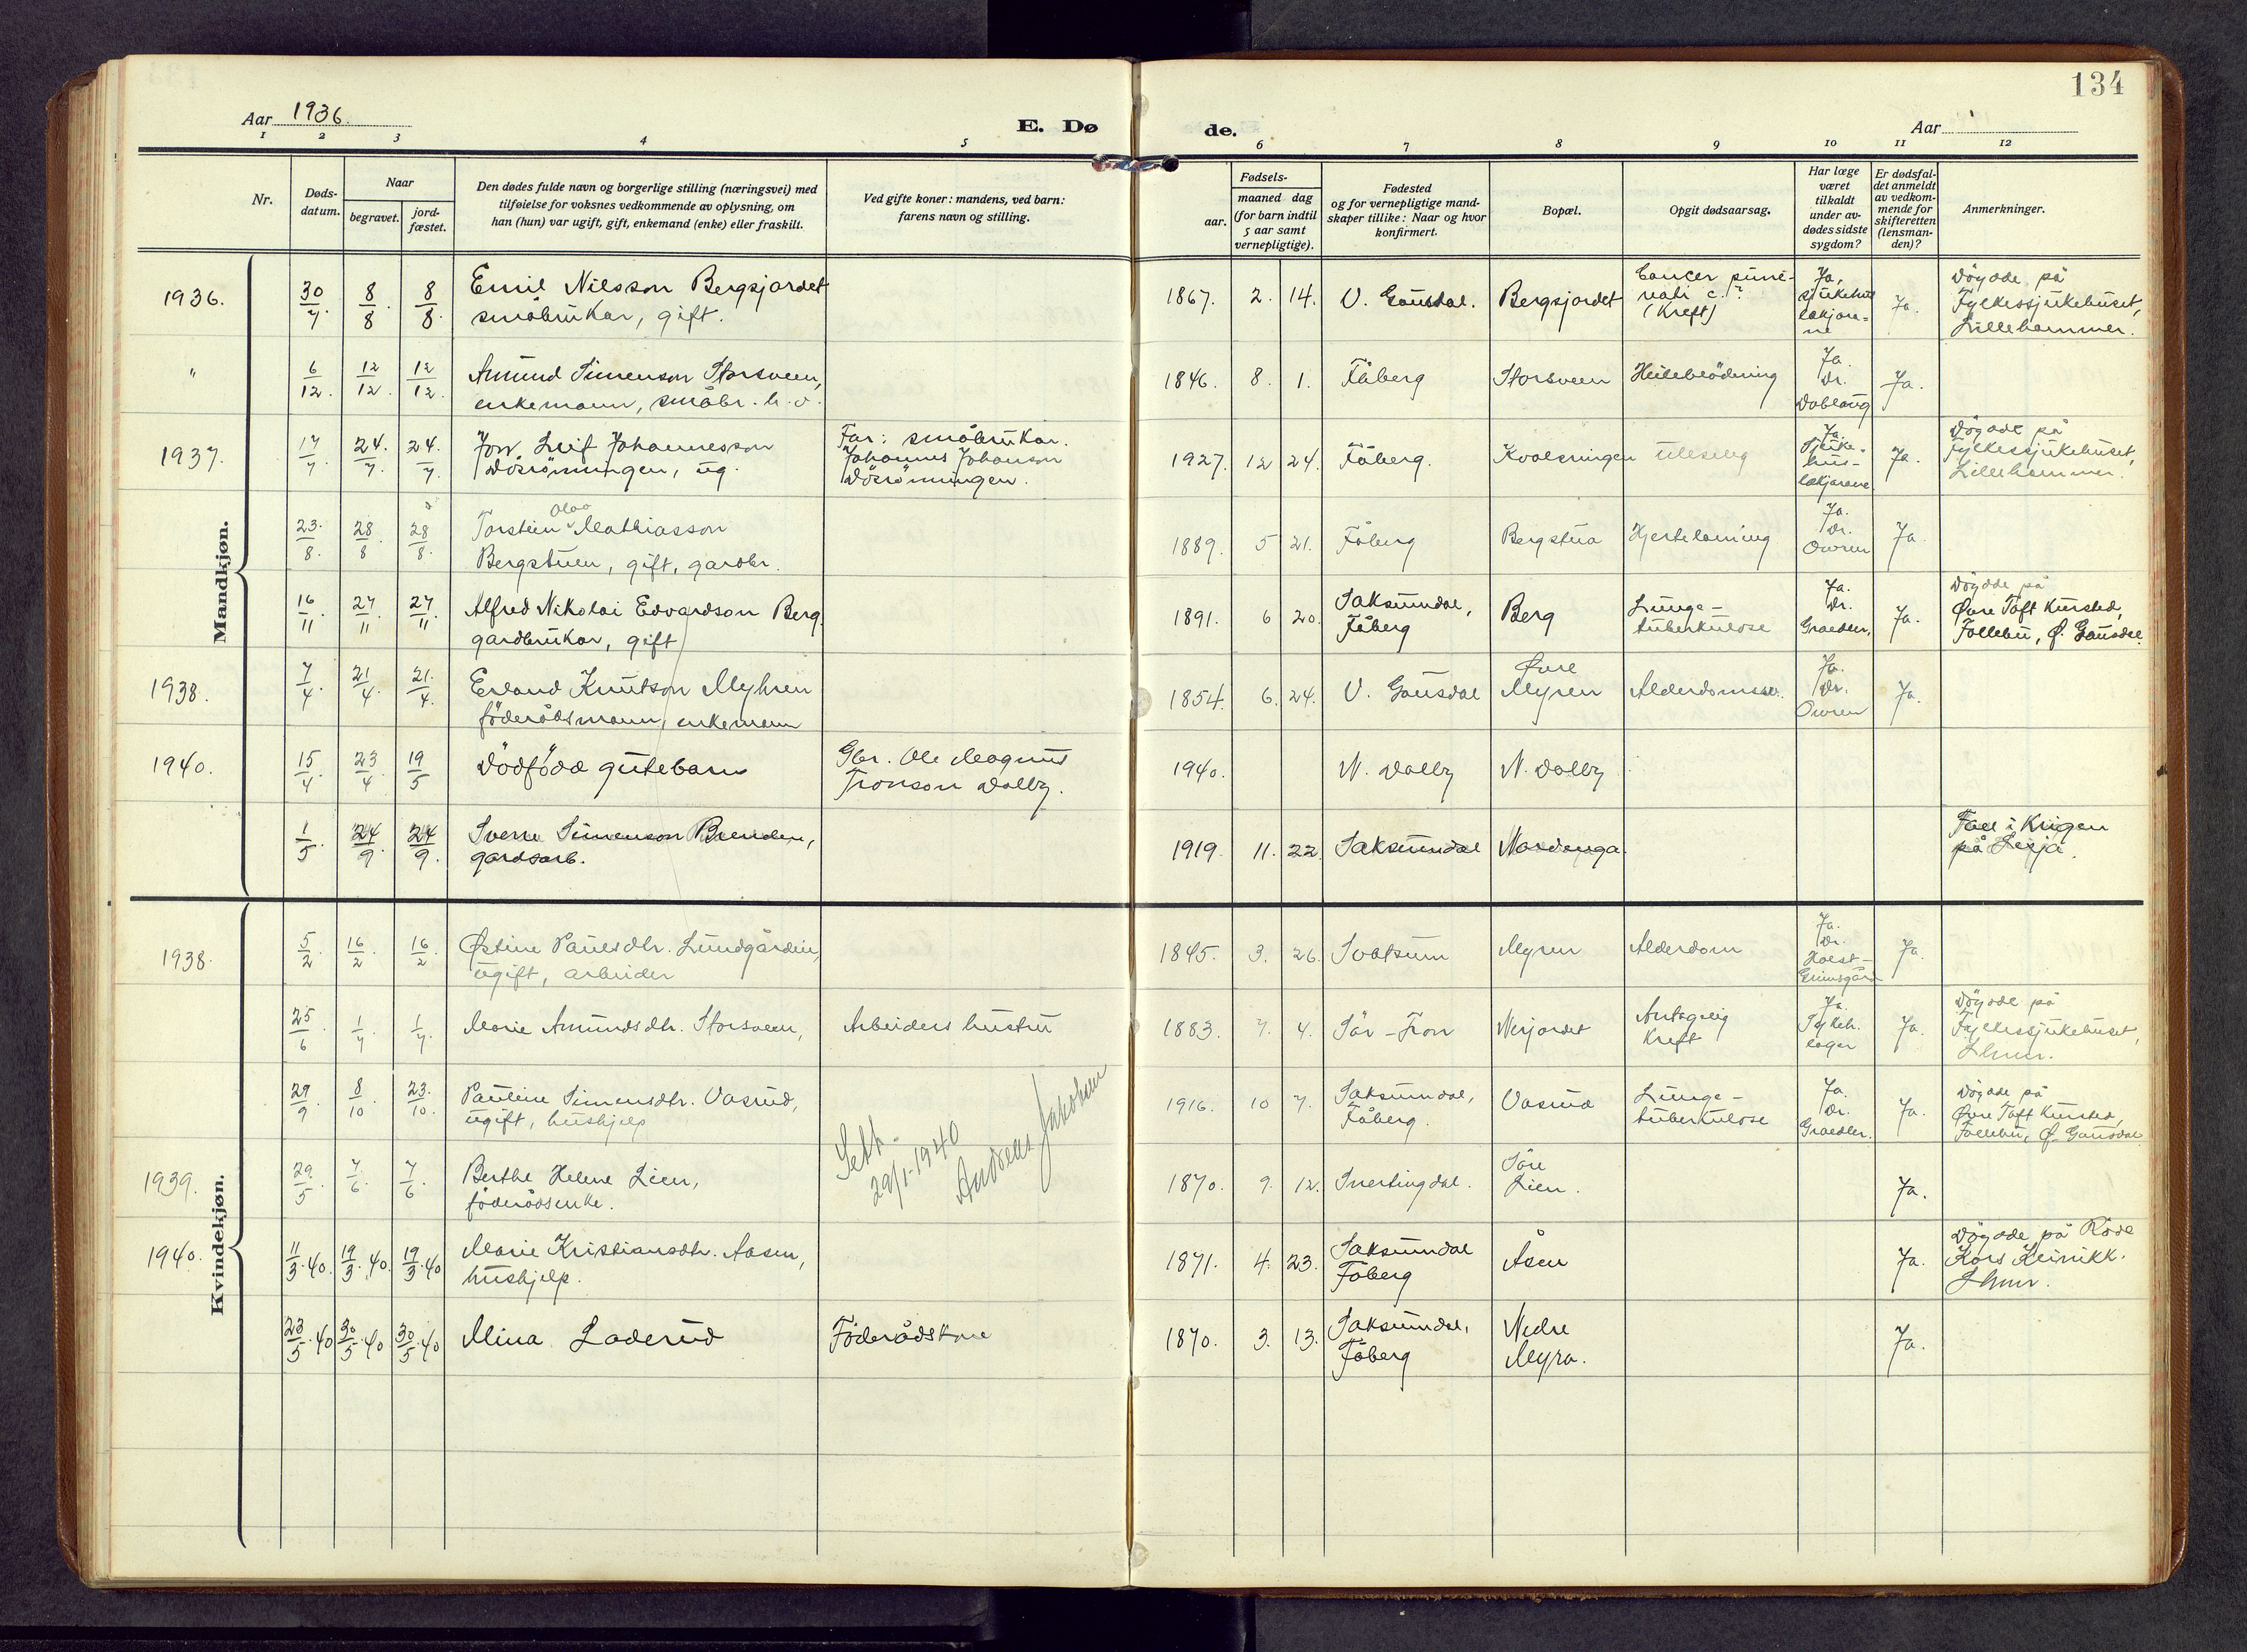 134
Aar 1936.
E. Dø
de.
Aar
1 2 3 4 5 6 7 8 9 10 11 12
Nr.
Døds-
datum.
Naar
begravet.
jord-
fæstet.
Den dødes fulde navn og borgerlige stilling (næringsvei) med
tilføielse for voksnes vedkommende av oplysning, om
han (hun) var ugift, gift, enkemand (enke) eller fraskilt.
Ved gifte koner: mandens, ved barn:
farens navn og stilling.
Fødsels-
aar.
maaned dag
(for barn indtil
5 aar samt
vernepligtige).
Fødested
og for vernepligtige mand-
skaper tillike: Naar og hvor
konfirmert.
Bopæl.
Opgit dødsaarsag.
Har læge
været
tilkaldt
under av-
dødes sidste
sygdom?
Er dødsfal-
det anmeldt
av vedkom-
mende for
skifteretten
(lensman-
den)?
Anmerkninger.
Mandkjøn.
1936. 30/7 8/8 8/8 Emil Nilsson Bergsjordet
småbrukar, gift.
1867. 2. 14. V. Gausdal. Bergsjordet Cancer
(Kreft)
Ja,
sjukehus
lækjara-
ne
Ja.
Döydde på
Fylkessjukehuset,
Lillehammer.
" 6/12. 12/12. 12/12. Amund Simenson Storsveen,
enkemann, småbr. k.å.
1846. 8. 1. Fåberg Storsveen Heileblödning
Ja.
Dr.
Dablaug
Ja.
1937. 17/7. 24./7. 24./7. Jon Leif Johannesson
Dösrönningen, ug.
Far: småbrukar.
Johannes Johanson
Dösrönningen.
1927. 12 24. Fåberg. Kvalsringen ulleseg
Ja.
Sjuke-
hus-
lækjarane
Ja.
Döydde på
Fylkessjukehuset,
Lillehammer.
23./8. 28/8. 28/8. Torstein Olao Mathiasson
Bergstuen, gift, gardbr.
1889. 5 21. Fåberg Bergstua Hjertelaming
Ja.
Dr.
Owren
Ja.
16/11 27/11 27/11. Alfred Nikolai Edvardson Berg.
gardbrukar, gift
1891. 6 20. Saksumdal,
Fåberg
Berg
Lunge-
tuberkulose
Ja.
Dr.
Graedler,
Ja.
Döydde på
Øvre Toft Kursted,
Follebu, Ø. Gausdal
1938. 7/4. 21/4. 21./4. Erland Knutson Myhren
föderådsmann, enkemann
1854. 6. 24. V. Gausdal Øvre
Myren
Alderdomssv.
Ja.
Dr.
Owren
Ja.
1940. 15/4. 23/4 19/5 Dödfödd gutebarn
Gbr. Ole Magnus
Tronson Dalby.
1940. N. Dalby N. Dalby
1/5. 24/9. 24/9. Sverre Simenson Brenden,
gardsarb.
1919. 11. 22. Saksumdal Nordenga.
Fall i Krigen
på Lesja.
Kvindekjøn.
1938. 5/2 16/2. 16/2 Østine Paulsdtr. Lundgårdein,
ugift, arbeider
1845. 3. 26. Svatsum Myren Alderdom
Ja.
Dr.
Holst-
Grimsgård
Ja.
25/6. 1/7. 1/7. Marie Amundsdtr. Storsveen, Arbeiders hustru
1883. 7. 4. Sör-Fron Nerjordet
Antagelig
kreft
Ja.
Sykeh.
læger
Ja.
Döydde på
Fylkessjukehuset,
Lhmr.
29/9. 8/10 23./10. Pauline Simensdtr. Vasrud,
ugift, hushjelp
1916. 10 7. Saksumdal,
Fåberg.
Vasrud
Lunge-
tuberkulose
Ja.
Dr.
Graedler.
Ja.
Döydde på
Øvre Toft Kursted,
Follebu, Ø. Gausdal
Sett
29/1-1940
Andreas Jakobsen
1939. 29./5. 7./6. 7/6. Berthe Helene Lien,
föderådsenke.
1870. 9. 12. Snertingdal. Söre
Lien.
Ja.
1940. 11/3.40. 19/3.40. 19/3.40 Marie Kristiansdtr. Aasen,
hushjelp.
1871. 4. 23. Saksumdal
Fåberg
Åsen
Ja.
Döydde på Röde
Kors Klinikk.
Lhmr.
23/5.40 30/5.40 30/5.40 Mina Laderud Föderådskone
1870. 3. 13. Saksumdal,
Fåberg
Nedre
Myra.
Ja.